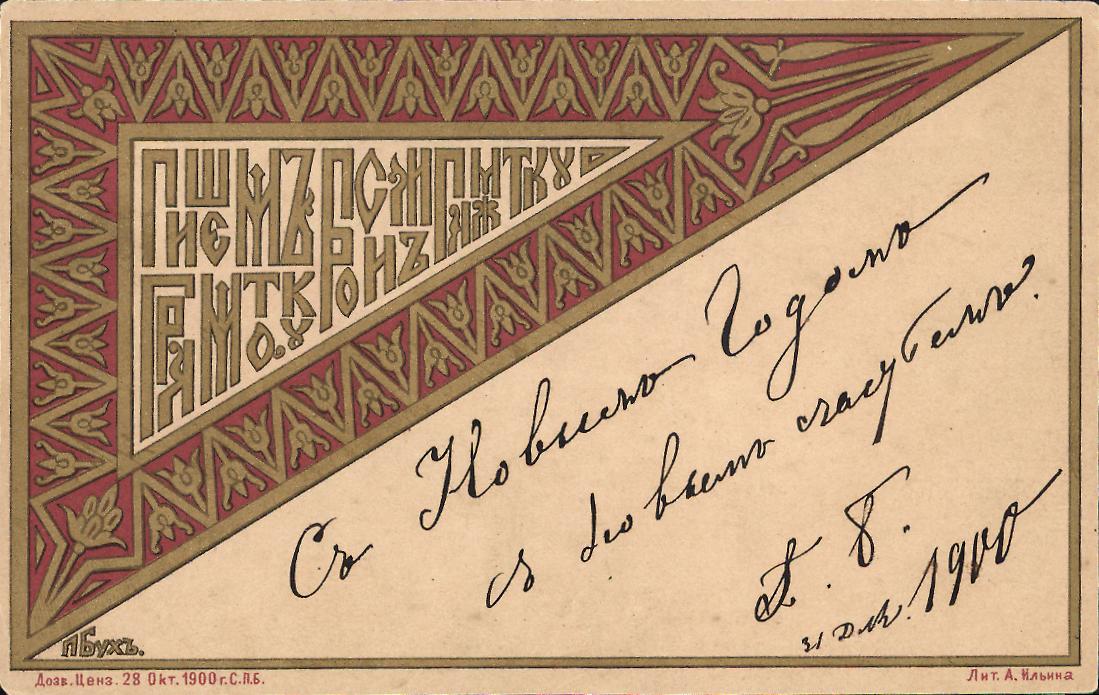 грамотку
Съ Новымъ Годомъ
съ новымъ счастьемъ.
31 Дек. 1900
П Бухъ.
Дозв. Ценз. 28 Окт. 1900 г. С.П.Б.
Лит. А. Ильина